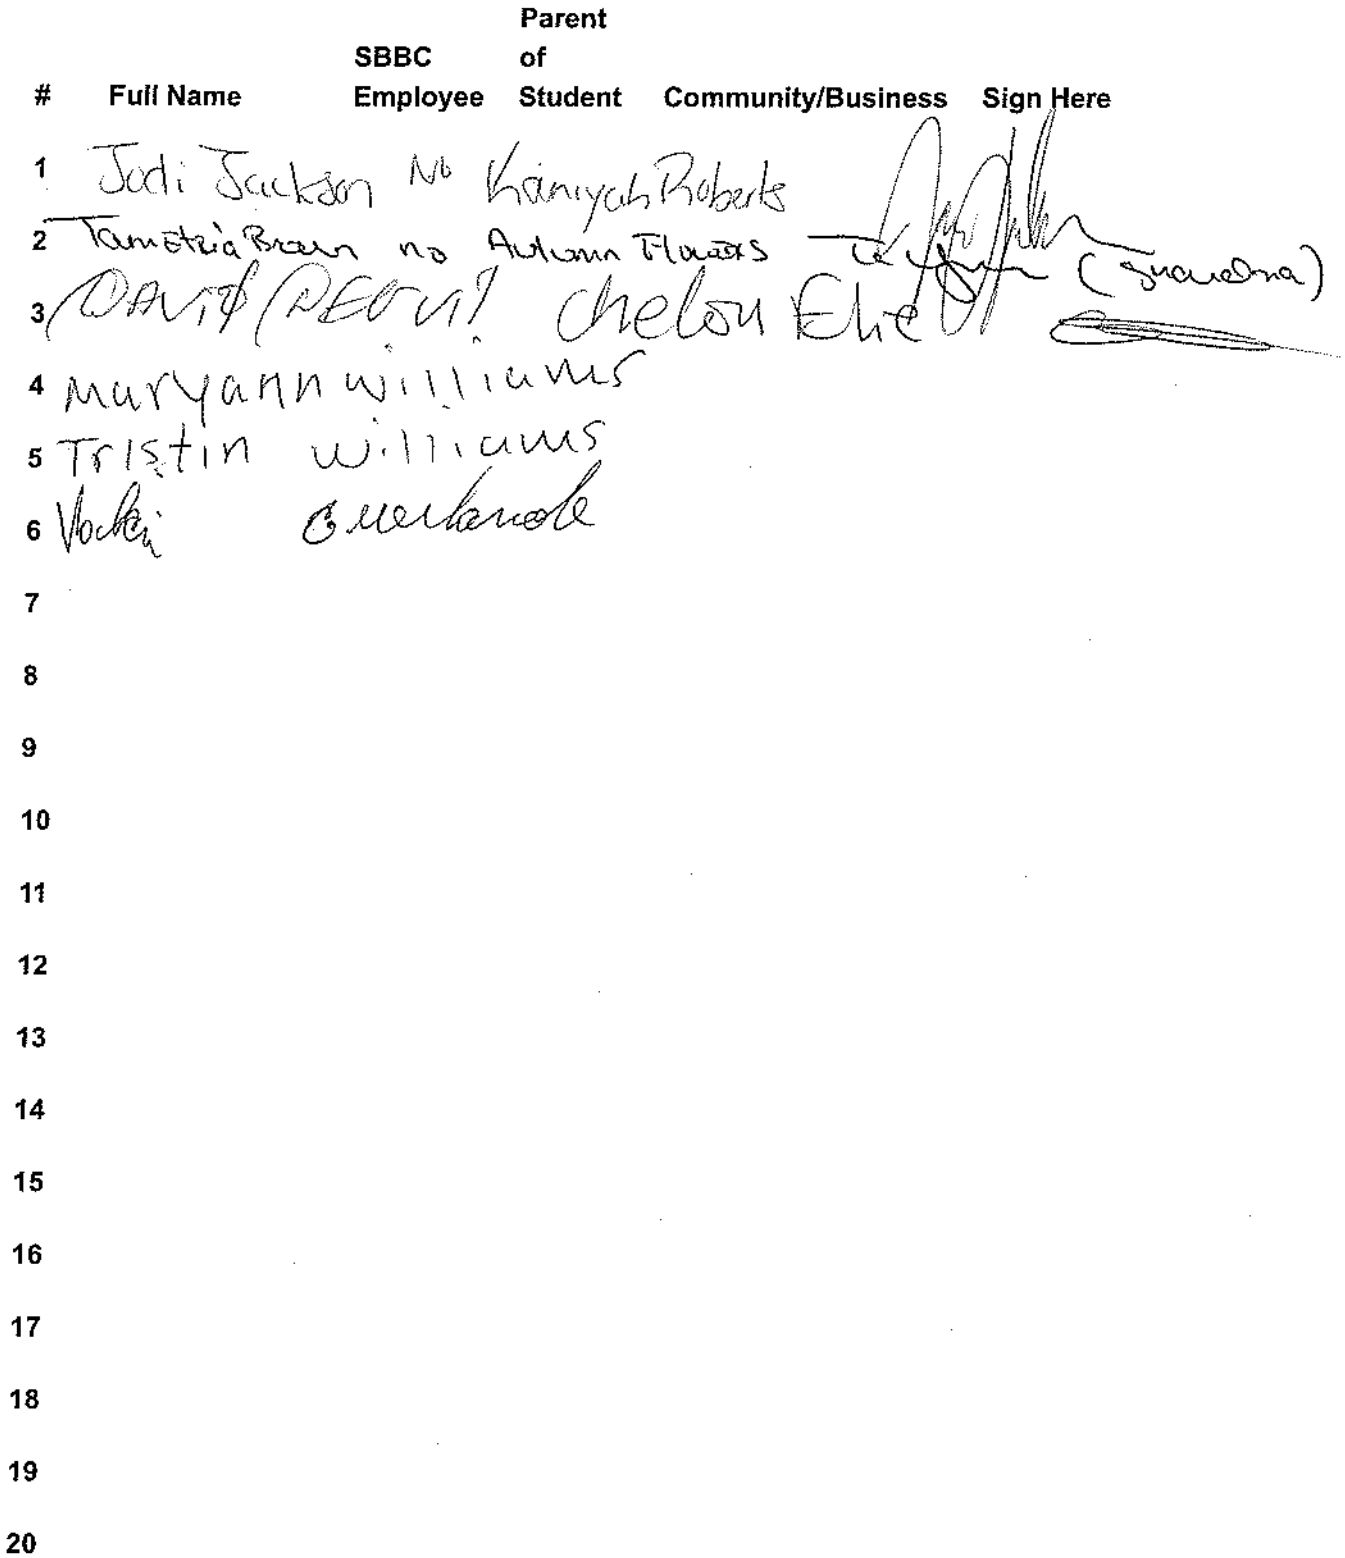 Parent
SBBC of
# Full Name Employee Student Community/Business Sign Here
1 Jodi Jackson No Kaniyah Roberts
2 Tametria Brown no Autumn Flowers (Grandma)
3 DAVID Chelon Elie
4 Maryann williams
5 Tristin williams
6
7
8
9
10
11
12
13
14
15
16
17
18
19
20